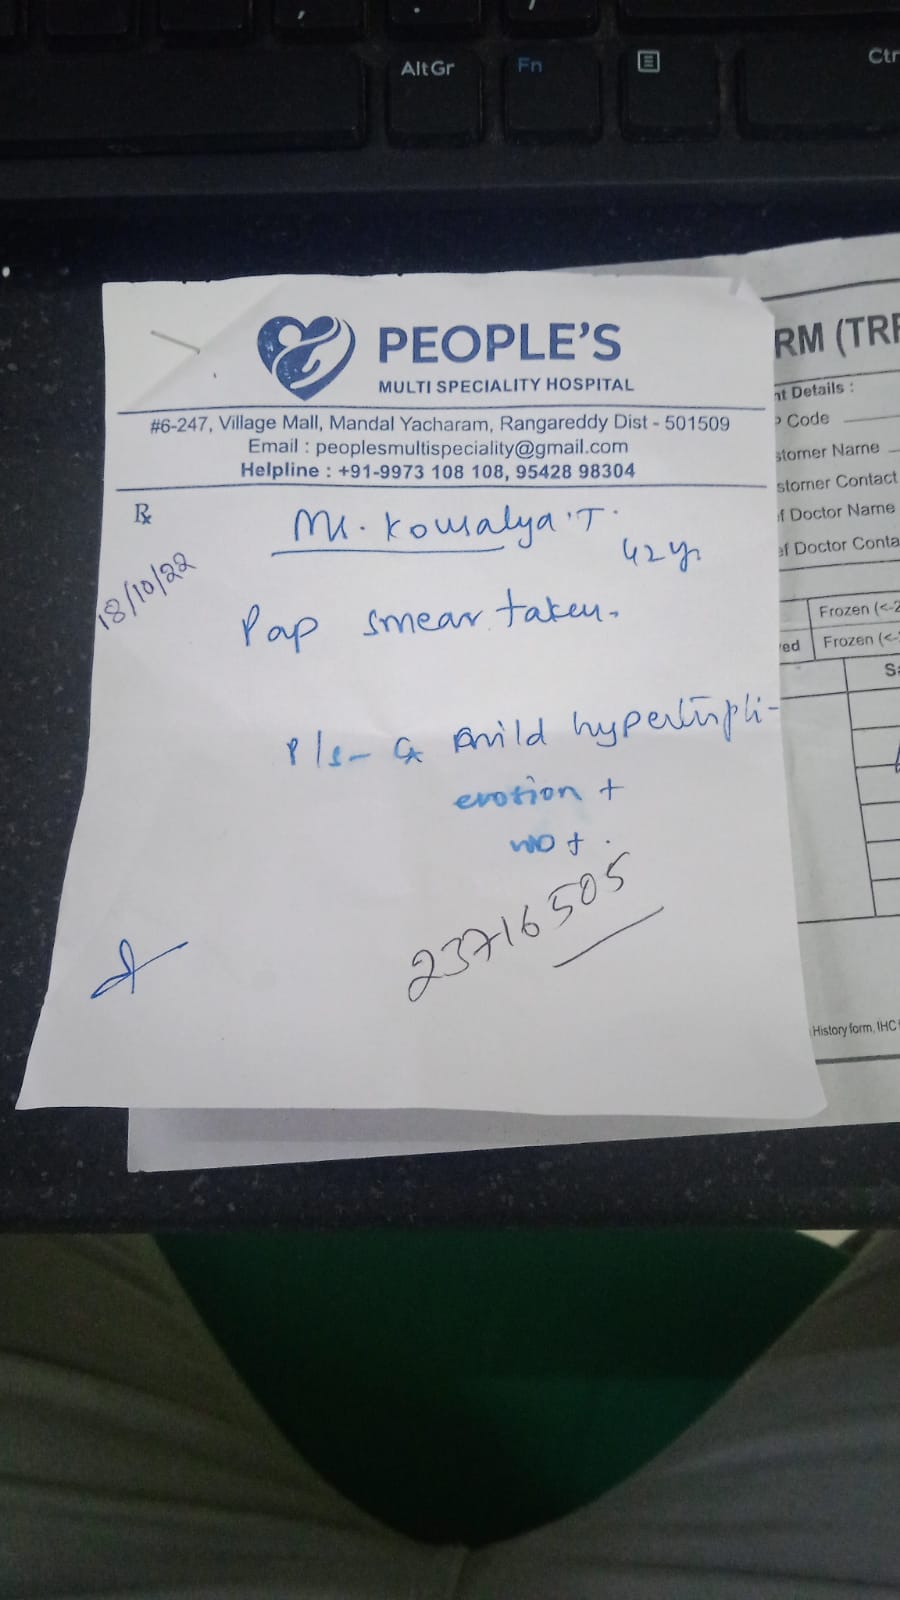 AltGr
Fn
Ctr
PEOPLE'S
MULTI SPECIALITY HOSPITAL
#6-247, Village Mall, Mandal Yacharam, Rangareddy Dist - 501509
Email : peoplesmultispeciality@gmail.com
Helpline : +91-9973 108 108, 95428 98304
Rx
Kousalya.T.
42 yr
18/10/22
Pap smear taken.
P/s - Cx mild
erosion +
WD +.
23716505
RM (TRF
nt Details :
Code
stomer Name
stomer Contact
f Doctor Name
ef Doctor Conta
Frozen (<-2
ed
Frozen (<-
Sa
History form, IHC